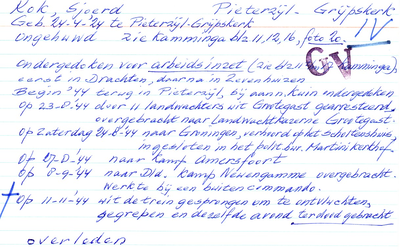 Kok, Sjoerd Pieterzijl - Grijpskerk
Geb. 24-4-'24 te Pieterzijl-Grijpskerk IV
Ongehuwd zie Kamminga blz 11, 12, 16, foto 20.
GV
ondergedoken voor arbeidsinzet (zie blz Kamminga),
eerst in Drachten, daarna in Zevenhuizen
Begin '44 terug in Pieterzijl, bij aann. Kuin ondergedoken
op 23-8-'44 door 11 landwachters uit Grotegast gearresteerd,
overgebracht naar Landwachtkazerne Grotegast.
op Zaterdag 24-8-'44 naar Groningen, verhoord op het Scholtenshuis,
ingesloten in het polit. bur. Martinikerkhof
op -'44 naar Kamp Amersfoort
op 8-9-'44 naar Dld. Kamp Neuengamme overgebracht.
Werkte bij een buitencommando.
op 11-11-'44 uit de trein gesprongen om te ontvluchten,
gegrepen en dezelfde avond ter dood gebracht
overleden